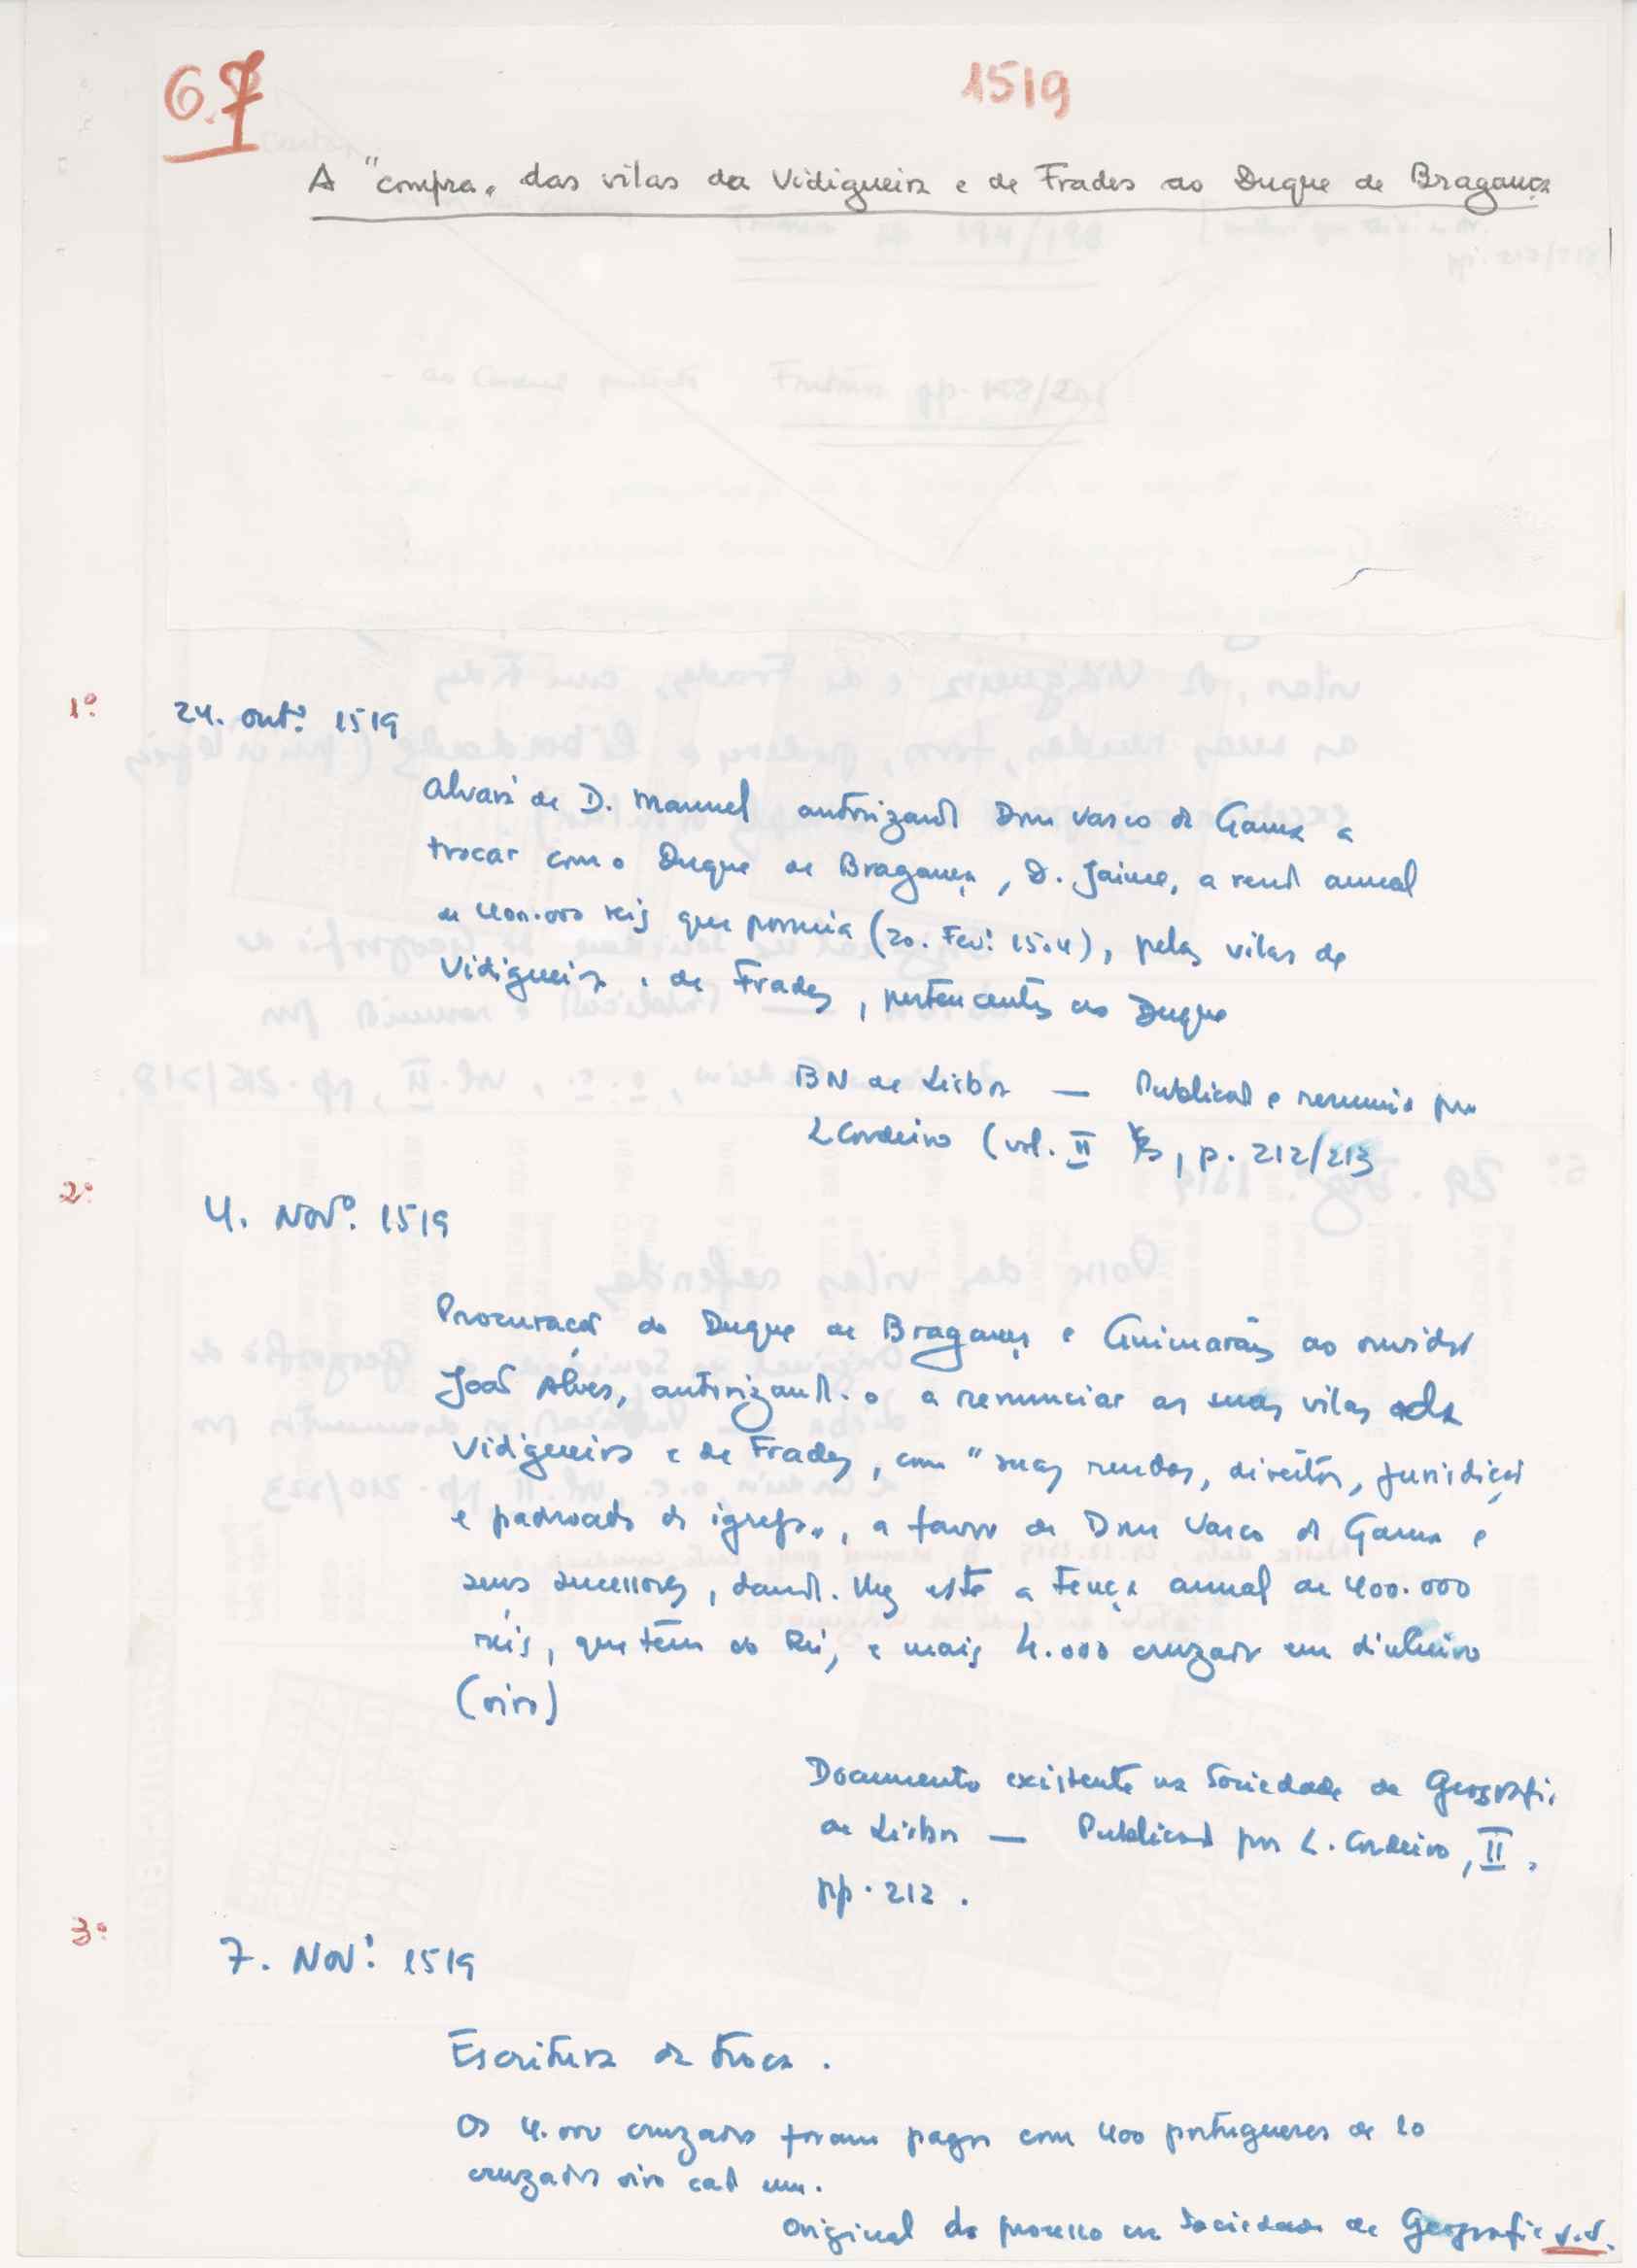 6.7
1519
A "compra" das vilas da Vidigueira e de Frades ao Duque de Bragança
1º
24. outº. 1519
Alvará de D. Manuel autorizando Dom Vasco da Gama a
trocar com o Duque de Bragança, D. Jaime, a renda anual
de 400.000 reis que possuia (20. Fevº. 1504), pelas vilas de
Vidigueira e de Frades, pertencentes ao Duque
BN de Lisboa — Publicado e resumido por
L Cordeiro (vol. II, p. 212/213
2º
4. Novº. 1519
Procuração do Duque de Bragança e Guimarães ao ouvidor
João Alves, autorizando-o a renunciar as suas vilas da
Vidigueira e de Frades, com "suas rendas, direitos, jurisdição
e padroado da igreja", a favor de Dom Vasco da Gama e
seus sucessores, dando-lhes este a tença anual de 400.000
reis, que tem do Rei, e mais 4.000 cruzados em dinheiro
(oiro)
Documento existente na Sociedade de Geografia
de Lisboa — Publicado por L. Cordeiro, II,
pp. 212.
3º
7. Novº. 1519
Escritura da troca.
Os 4.000 cruzados foram pagos com 400 portugueses de 10
cruzados oiro cada um.
Original do processo na Sociedade de Geografia